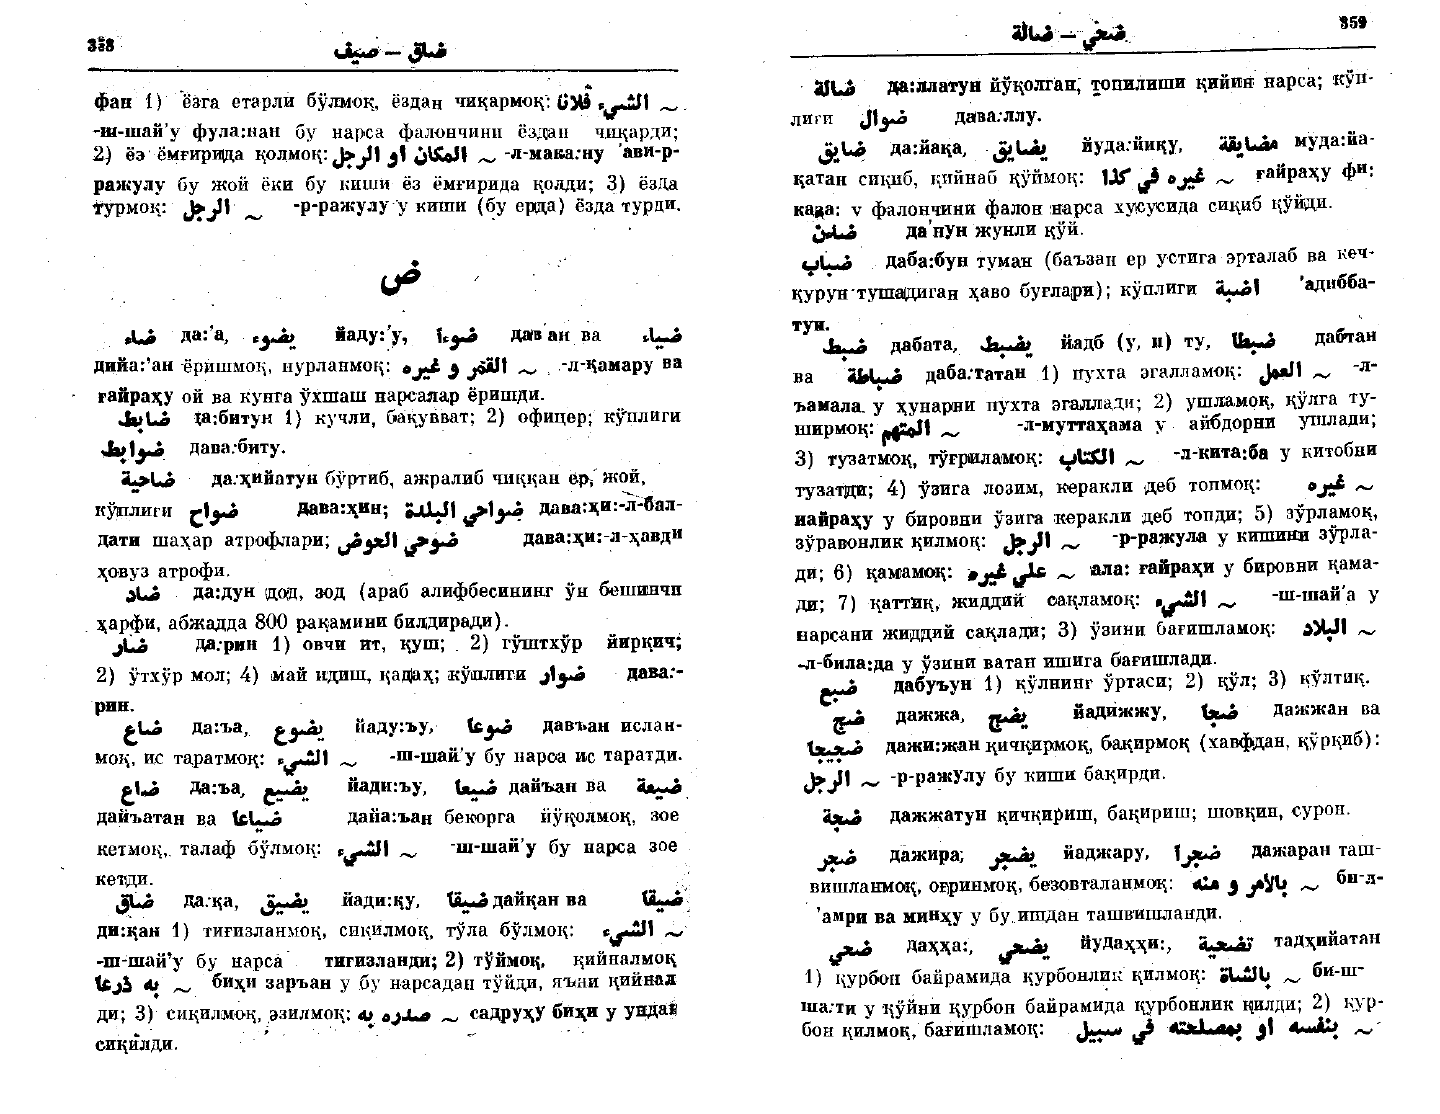 358
ضاق — صيف
фан 1) ёзга етарли бўлмоқ, ёздан чиқармоқ: الشيء فلانا ~
-ш-шай’у фула:нан бу нарса фалончини ёздан чиқарди;
2) ёз ёмғирида қолмоқ: المكان او الرجل ~ -л-мака:ну ’ави-р-
ражулу бу жой ёки бу киши ёз ёмғирида қолди; 3) ёзда
турмоқ: الرجل ~ -р-ражулу у киши (бу ерда) ёзда турди.
ض
ضاء да:’а, يضوء йаду:’у, ضوءا дав’ан ва ضياء
дийа:’ан ёришмоқ, нурланмоқ: القمر و غيره ~ -л-қамару ва
ғайраҳу ой ва кунга ўхшаш нарсалар ёришди.
ضابط да:битун 1) кучли, бақувват; 2) офицер; кўплиги
ضوابط дава:биту.
ضاحية да:ҳийатун бўртиб, ажралиб чиққан ер, жой,
кўплиги ضواح дава:ҳин; ضواحي البلدة дава:ҳи:-л-бал-
дати шаҳар атрофлари; ضوحي الحوض дава:ҳи:-л-ҳавди
ҳовуз атрофи.
ضاد да:дун дод, зод (араб алифбесининг ўн бешинчи
ҳарфи, абжадда 800 рақамини билдиради).
ضار да:рин 1) овчи ит, қуш; 2) гўштхўр йирқич;
2) ўтхўр мол; 4) май идиш, қадаҳ; кўплиги ضوار дава:-
рин.
ضاع да:ъа, يضوع йаду:ъу, ضوعا давъан ислан-
моқ, ис таратмоқ: الشيء ~ -ш-шай’у бу нарса ис таратди.
ضاع да:ъа, يضيع йади:ъу, ضيعا дайъан ва ضيعة
дайъатан ва ضياعا дайа:ъан бекорга йўқолмоқ, зое
кетмоқ, талаф бўлмоқ: الشيء ~ -ш-шай’у бу нарса зое
кетди.
ضاق да:қа, يضيق йади:қу, ضيقا дайқан ва ضيقا
ди:қан 1) тиғизланмоқ, сиқилмоқ, тўла бўлмоқ: الشيء ~
-ш-шай’у бу нарса тиғизланди; 2) тўймоқ, қийналмоқ
به ذرعا ~ биҳи заръан у бу нарсадан тўйди, яъни қийнал
ди; 3) сиқилмоқ, эзилмоқ: صدره به ~ садруҳу биҳи у ундай
сиқилди.
359
ضحي — ضالة
ضالة да:ллатун йўқолган, топилиши қийин нарса; кўп-
лиги ضوال дава:ллу.
ضايق да:йақа, يضايق йуда:йиқу, مضايقة муда:йа-
қатан сиқиб, қийнаб қўймоқ: غيره في كذا ~ ғайраҳу фи:
каза: у фалончини фалон нарса хусусида сиқиб қўйди.
ضاءن да’пун жунли қўй.
ضباب даба:бун туман (баъзан ер устига эрталаб ва кеч-
қурун тушадиган ҳаво буғлари); кўплиги اضبة ’адибба-
тун.
ضبط дабата, يضبط йадб (у, и) ту, ضبطا дабтан
ва ضباطة даба:татан 1) пухта эгалламоқ: العمل ~ -л-
ъамала у ҳунарни пухта эгаллади; 2) ушламоқ, қўлга ту-
ширмоқ: المتهم ~ -л-муттаҳама у айбдорни ушлади;
3) тузатмоқ, тўғриламоқ: الكتاب ~ -л-кита:ба у китобни
тузатди; 4) ўзига лозим, керакли деб топмоқ: غيره ~
найраҳу у бировни ўзига керакли деб топди; 5) зўрламоқ,
зўравонлик қилмоқ: الرجل ~ -р-ражула у кишини зўрла-
ди; 6) қамамоқ: علي غيره ~ ала: ғайраҳи у бировни қама-
ди; 7) қаттиқ, жиддий сақламоқ: الشيء ~ -ш-шай’а у
нарсани жиддий сақлади; 3) ўзини бағишламоқ: البلاد ~
-л-била:да у ўзини ватан ишига бағишлади.
ضبع дабуъун 1) қўлнинг ўртаси; 2) қўл; 3) қўлтиқ.
ضج дажжа, يضج йадижжу, ضجا дажжан ва
ضجيجا дажи:жан қичқирмоқ, бақирмоқ (хавфдан, қўрқиб):
الرجل ~ -р-ражулу бу киши бақирди.
ضجة дажжатун қичқириш, бақириш; шовқин, сурон.
ضجر дажира; يضجر йаджару, ضجرا дажаран таш-
вишланмоқ, оғринмоқ, безовталанмоқ: بالامر و منه ~ би-л-
’амри ва минҳу у бу ишдан ташвишланди.
ضحي даҳҳа:, يضحي йудаҳҳи:, تضحية тадҳийатан
1) қурбон байрамида қурбонлик қилмоқ: بالشاة ~ би-ш-
ша:ти у қўйни қурбон байрамида қурбонлик қилди; 2) қур-
бон қилмоқ, бағишламоқ: بنفسه او بمصلحته في سبيل ~